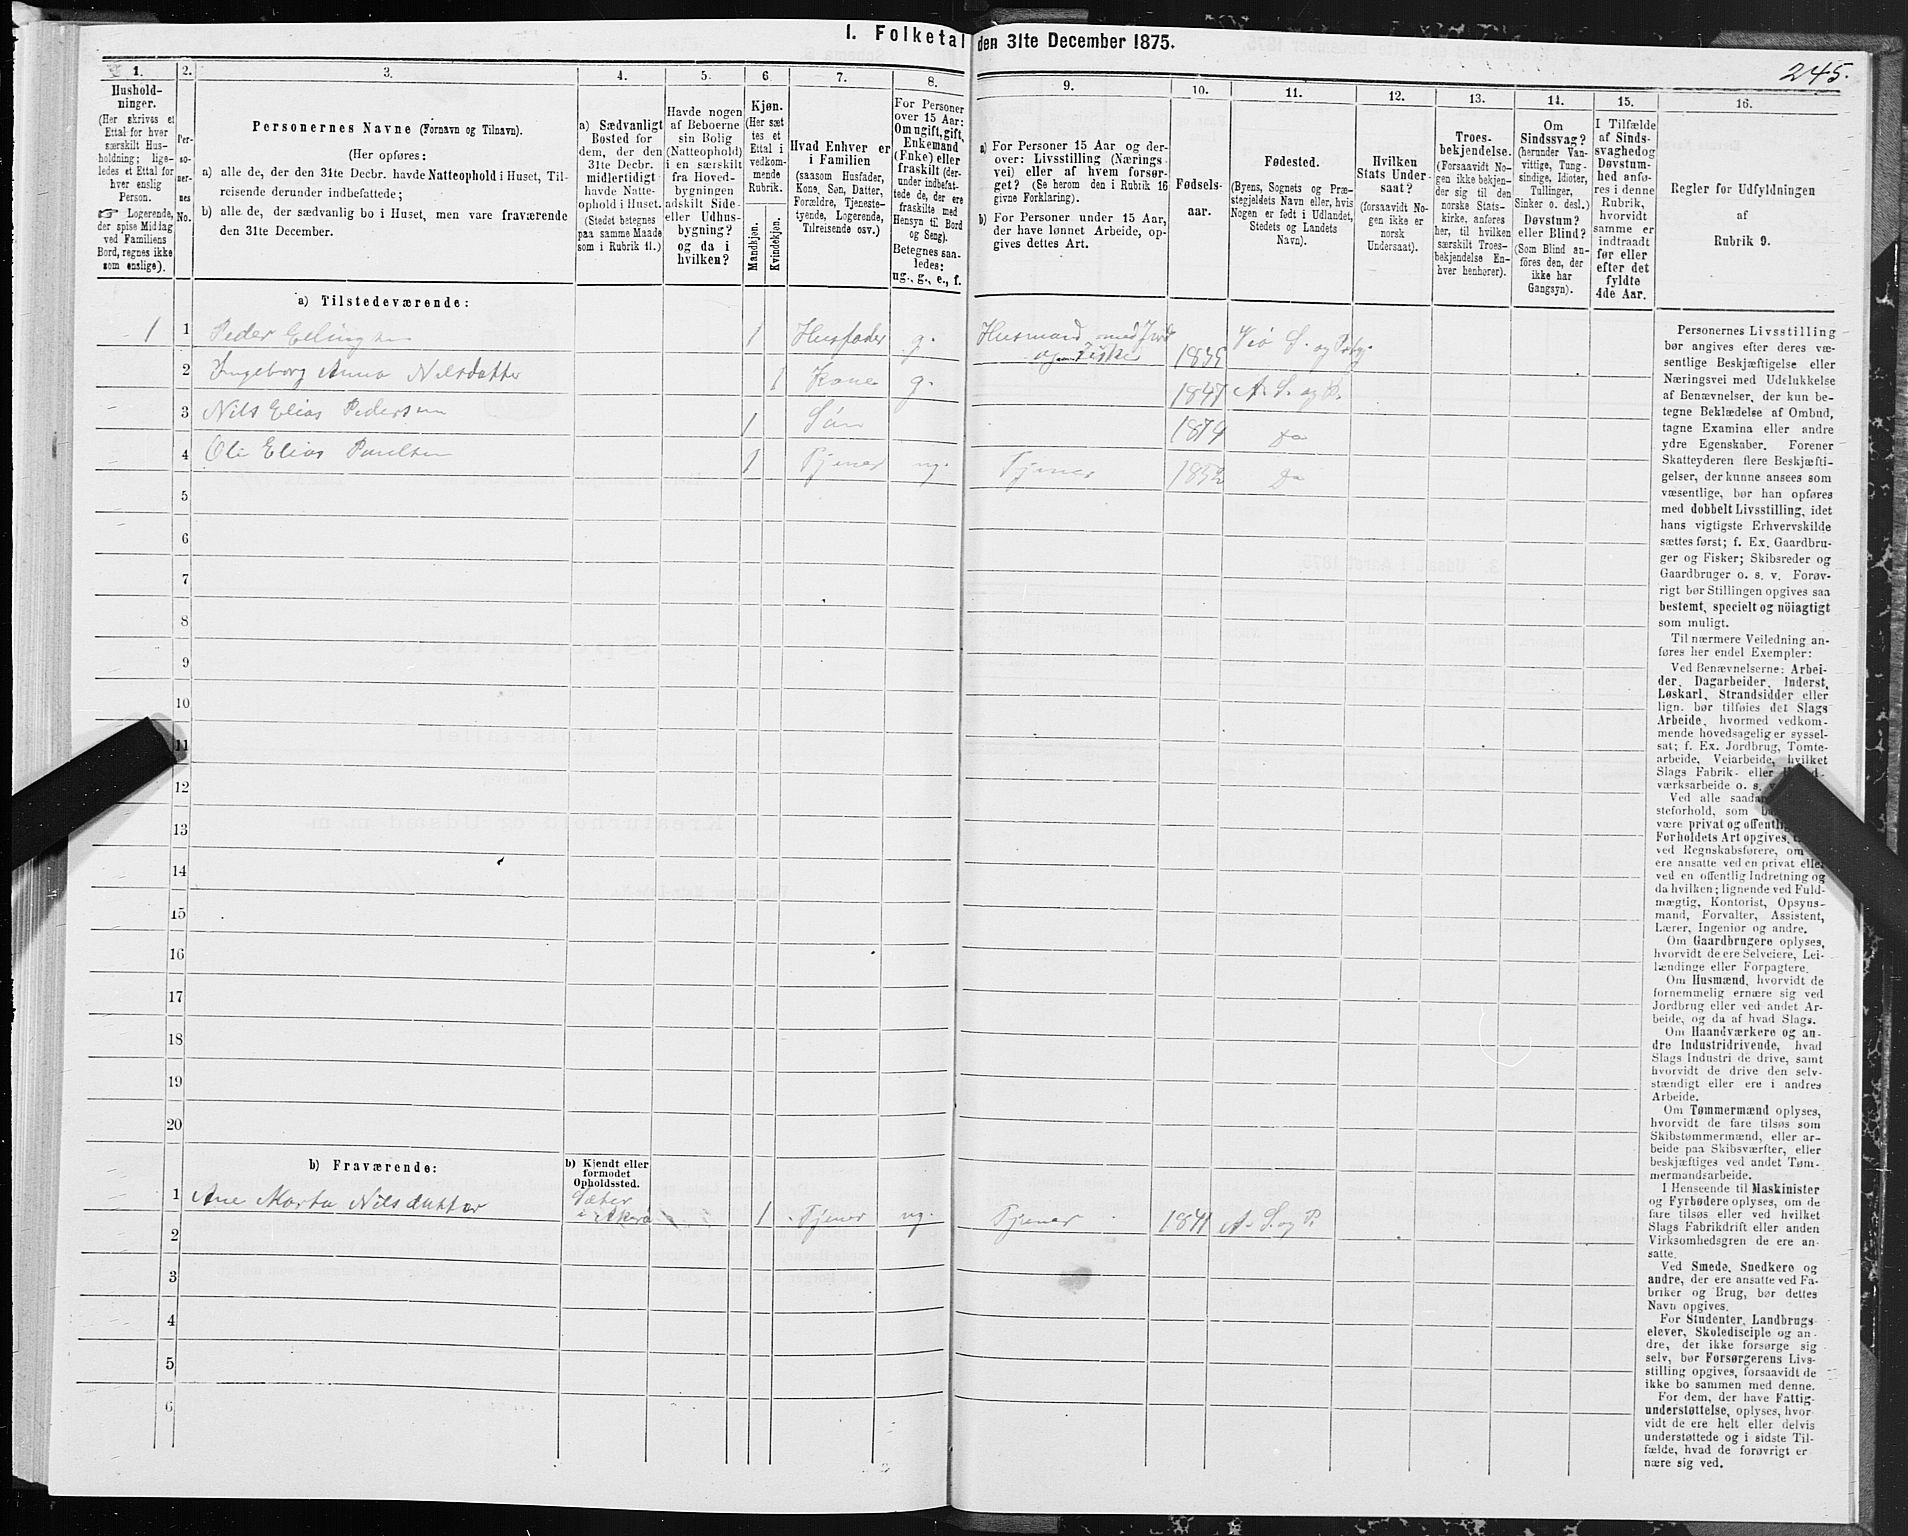 1. Folketal den 31te December 1875.
245.
1. 2. 3. 4. 5. 6. 7. 8. 9. 10. 11. 12. 13. 14. 15. 16.
Hushold-
ninger.
(Her skrives et
Ettal for hver
særskilt Hus-
holdning; lige-
ledes et Ettal for
hver enslig
Person.
☞ Logerende,
der spise Middag
ved Familiens
Bord, regnes ikke
som enslige).
Per-
so-
ner-
nes
No.
Personernes Navne (Fornavn og Tilnavn).
(Her opføres:
a) alle de, der den 31te Decbr. havde Natteophold i Huset, Til-
reisende derunder indbefattede;
b) alle de, der sædvanlig bo i Huset, men vare fraværende
den 31te December.
a) Sædvanligt
Bosted for
dem, der den
31te Decbr.
midlertidigt
havde Natte-
ophold i Huset.
(Stedet betegnes
paa samme Maade
som i Rubrik 11.)
Havde nogen
af Beboerne
sin Bolig
(Natteophold)
i en særskilt
fra Hoved-
bygningen
adskilt Side-
eller Udhus-
bygning?
og da i
hvilken?
Kjøn.
(Her sæt
tes et
Ettal i
vedkom-
mende
Rubrik.
Mandkjøn.
Kvindekjøn.
Hvad Enhver er
i Familien
(saasom Husfader,
Kone, Søn, Datter,
Forældre, Tjeneste-
tyende, Logerende,
Tilreisende osv.)
For Personer
over 15 Aar:
Om ugift, gift,
Enkemand
(Enke) eller
fraskilt (der-
under indbefat-
tede de, der ere
fraskilte med
Hensyn til Bord
og Seng).
Betegnes saa-
ledes:
ug., g., e., f.
a) For Personer 15 Aar og der-
over: Livsstilling (Nærings-
vei) eller af hvem forsør-
get? (Se herom den i Rubrik 16
givne Forklaring).
b) For Personer under 15 Aar,
der have lønnet Arbeide, op-
gives dettes Art.
Fødsels-
aar.
Fødested.
(Byens, Sognets og Præ-
stegjeldets Navn eller, hvis
Nogen er født i Udlandet,
Stedets og Landets
Navn).
Hvilken
Stats Under-
saat?
(forsaavidt No-
gen ikke er
norsk
Undersaat).
Troes-
bekjendelse.
(Forsaavidt No-
gen ikke bekjen-
der sig til den
norske Stats-
kirke, anføres
her, til hvilken
særskilt Troes-
bekjendelse En-
hver henhører).
Om
Sindssvag?
(herunder Van-
vittige, Tung-
sindige, Idioter,
Tullinger,
Sinker o. desl.)
Døvstum?
eller Blind?
(Som Blind an-
føres den, der
ikke har
Gangsyn).
I Tilfælde
af Sinds-
svaghed og
Døvstum-
hed anfø-
res i denne
Rubrik,
hvorvidt
samme er
indtraadt
før eller
efter det
fyldte
4de Aar.
Regler for Udfyldningen
af
Rubrik 9.
a) Tilstedeværende:
1 1 Peder 1 Husfader g. Husmand med Jord og Fiske 1835 Veø S. og
2 Ingeborg Anna Nilsdatter 1 Kone g. 1847 A. S. og P.
3 Nils Elias Pedersen 1 Søn 1874 Do
4 Ole Elias Paulsen 1 Tjener ug. Tjener 1852 Do
5
6
7
8
9
10
11
12
13
14
15
16
17
18
19
20
b) Fraværende:
b) Kjendt eller
formodet
Opholdssted.
1 Ane Marta Nilsdatter Sæter i Akerø 1 Tjener ug. Tjener 1841 A. S. og P.
2
3
4
5
6
Personernes Livsstilling
bør angives efter deres væ-
sentlige Beskjæftigelse eller
Næringsvei med Udelukkelse
af Benævnelser, der kun be-
tegne Beklædelse af Ombud,
tagne Examina eller andre
ydre Egenskaber. Forener
Skatteyderen flere Beskjæfti-
gelser, der kunne ansees som
væsentlige, bør han opføres
med dobbelt Livsstilling, idet
hans vigtigste Erhvervskilde
sættes først; f. Ex. Gaardbru-
ger og Fisker; Skibsreder og
Gaardbruger o. s. v. Forøv-
rigt bør Stillingen opgives saa
bestemt, specielt og nöiagtigt
som muligt.
Til nærmere Veiledning an-
føres her endel Exempler:
Ved Benævnelserne: Arbei-
der, Dagarbeider, Inderst,
Løskarl, Strandsidder eller
lign. bør tilføies det Slags
Arbeide, hvormed vedkom-
mende hovedsagelig er syssel-
sat; f. Ex. Jordbrug, Tomte-
arbeide, Veiarbeide, hvilket
Slags Fabrik- eller
værksarbeide o. s.
Ved alle
steforhold, som
være privat og
Forholdets Art opgives,
ved Regnskabsførere, om
ere ansatte ved en privat eller
ved en offentlig Indretning og
da hvilken; lignende ved Fuld-
mægtig, Kontorist, Opsyns-
mand, Forvalter, Assistent,
Lærer, Ingeniør og andre.
Om Gaardbrugere oplyses,
hvorvidt de ere Selveiere, Lei-
lændinge eller Forpagtere.
Om Husmænd, hvorvidt de
fornemmelig ernære sig ved
Jordbrug eller ved andet Ar-
beide, og da af hvad Slags.
Om Haandværkere og an-
dre Industridrivende, hvad
Slags Industri de drive, samt
hvorvidt de drive den selv-
stændigt eller ere i andres
Arbeide.
Om Tømmermænd oplyses,
hvorvidt de fare tilsøs som
Skibstømmermænd, eller ar-
beide paa Skibsværfter, eller
beskjæftiges ved andet Tøm-
mermandsarbeide.
I Henseende til Maskinister
og Fyrbødere oplyses, om de
fare tilsøs eller ved hvilket
Slags Fabrikdrift eller anden
Virksomhedsgren de ere an-
satte.
Ved Smede, Snedkere og
andre, der ere ansatte ved Fa-
briker og Brug, bør dettes
Navn opgives.
For Studenter, Landbrugs-
elever, Skoledisciple og an-
dre, der ikke forsørge sig
selv, bør Forsørgerens Livs-
stilling opgives, forsaavidt de
ikke bo sammen med denne.
For dem, der have Fattig-
understøttelse, oplyses, hvor-
vidt de ere helt eller delvis
understøttede og i sidste Til-
fælde, hvad de forøvrigt er
nære sig ved.